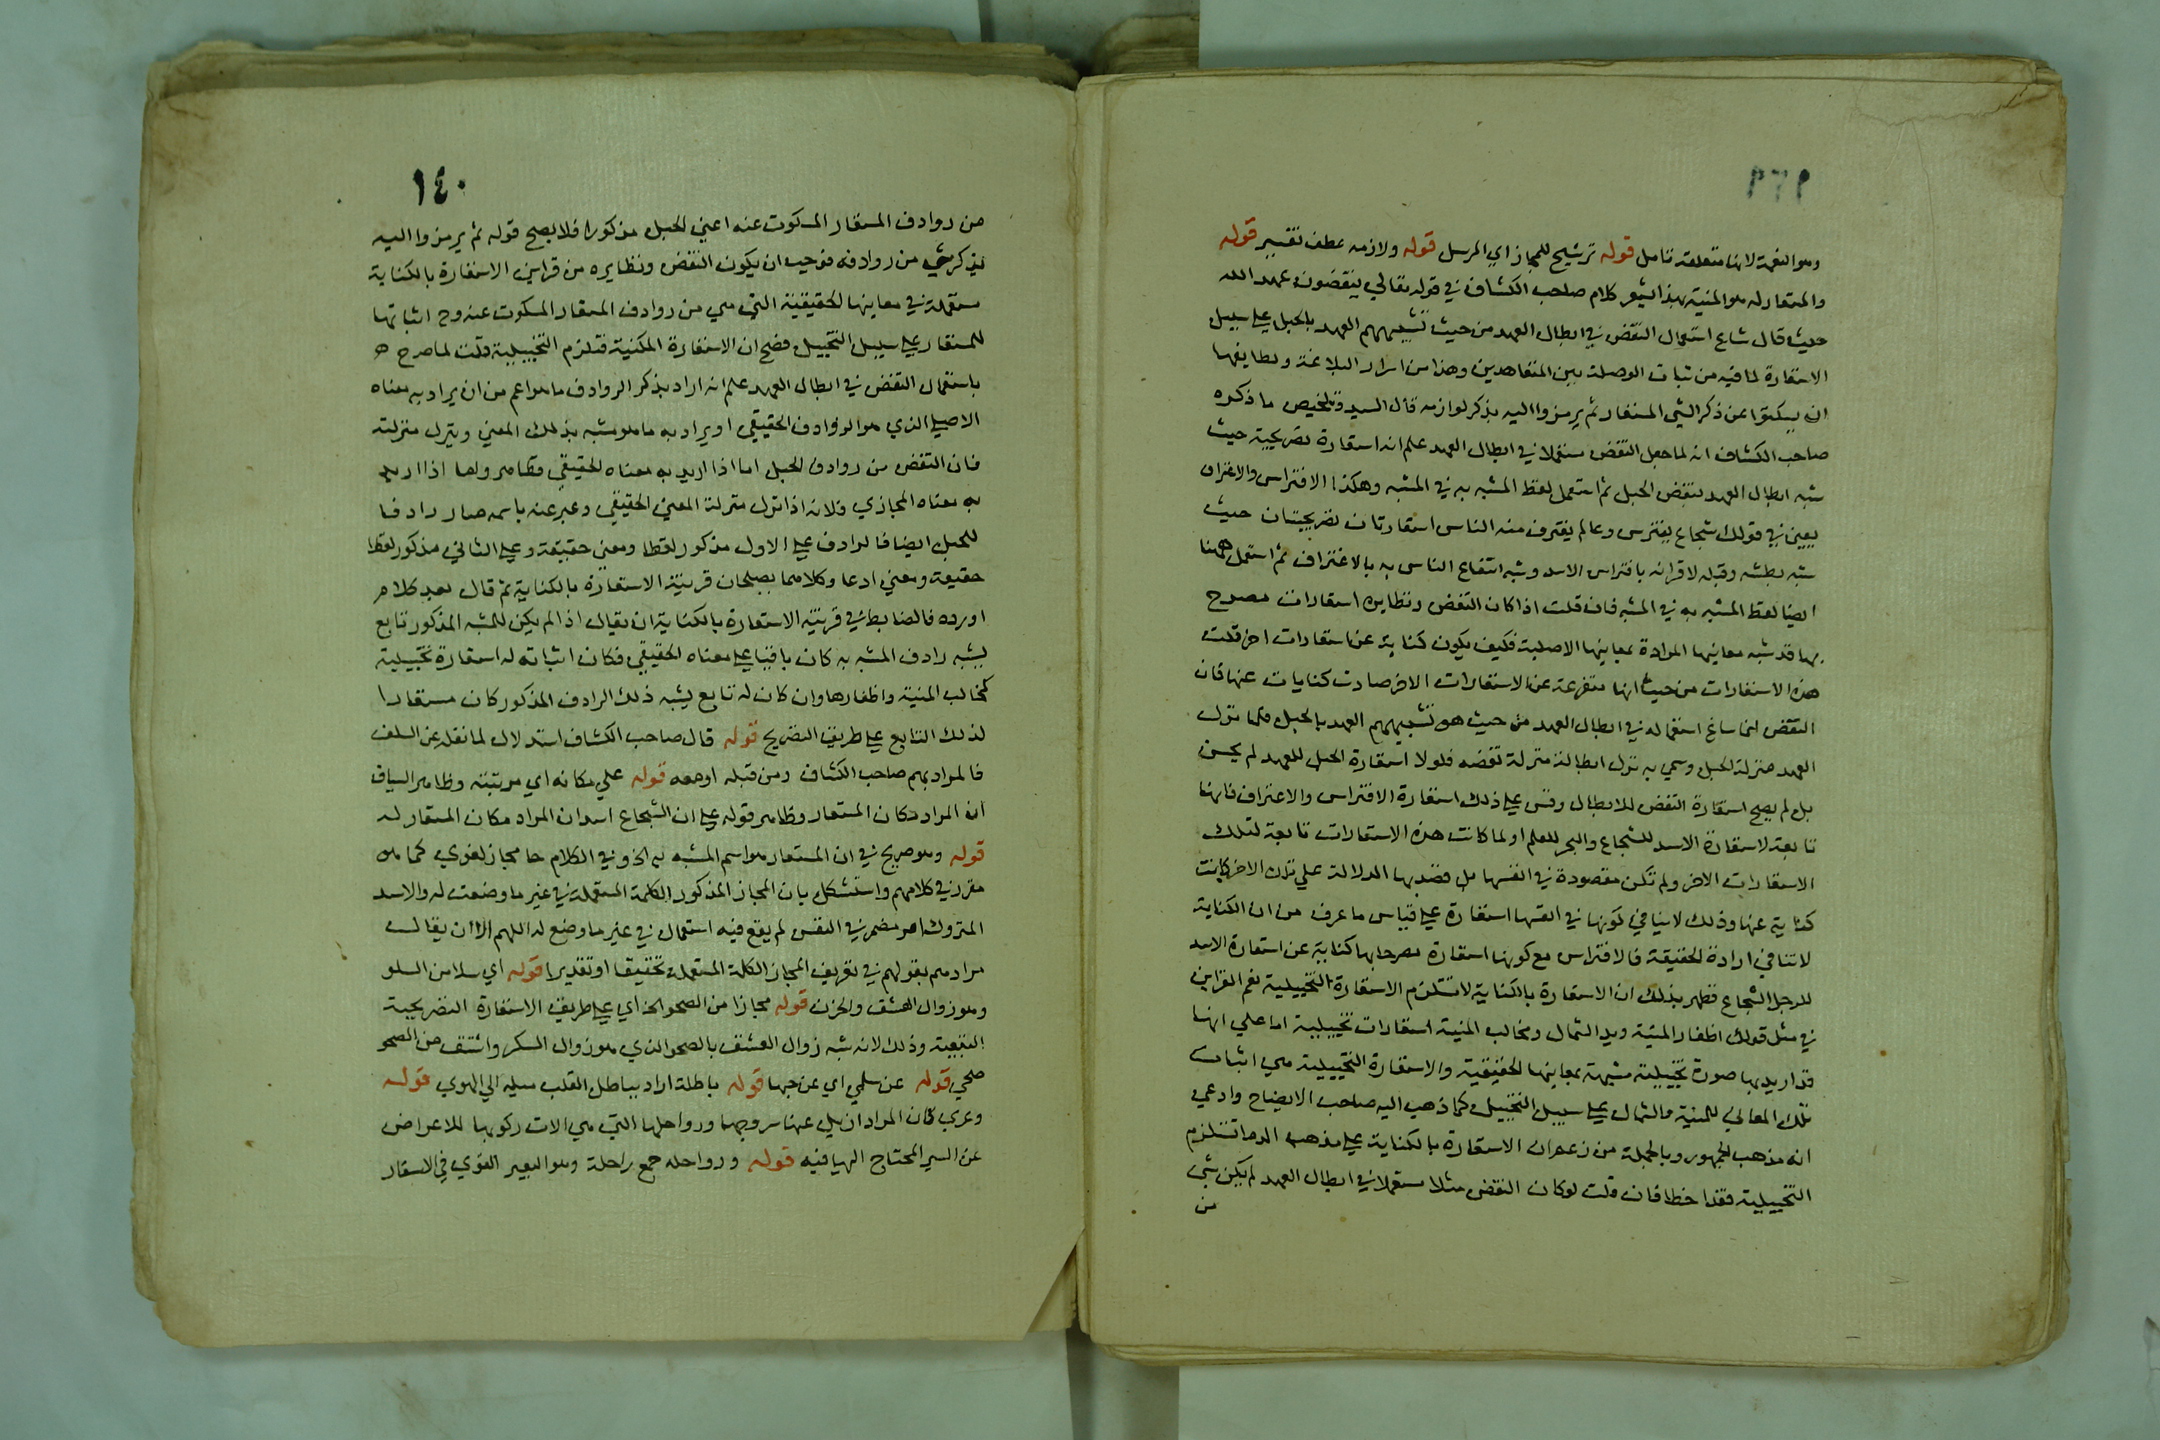 ٢٦٩
وهو النعمة لانها متعلقة تامل قوله ترشيح للمجاز اي المرسل قوله ولازمه عطف تفسير قوله
والمستعار له هو المنية بهذا يشعر كلام صاحب الكشاف في قوله تعالي ينقضون عهد الله
حيث قال شاع استعمال النقض في ابطال العهد من حيث تشبيههم العهد بالحبل علي سبيل
الاستعارة لما فيه من ثبات الوصلة بين المتعاهدين وهذا من اسرار البلاغة ولطايفها
ان يسكتوا عن ذكر الشي المستعار ثم يرمزوا اليه بذكر لوازمه قال السيد وتلخيص ما ذكره
صاحب الكشاف انه لما جعل النقض مستعملا في ابطال العهد علم انه استعارة تصريحية حيث
شبه ابطال العهد بنقض الحبل ثم استعمل لفظ المشبه به في المشبه وهكذا الافتراس والاغتراف
يعين في قولك شجاع يفترس وعالم يغترف منه الناس استعارتان تصريحيتان حيث
شبه بطشه وقتله لاقرانه بافتراس الاسد وشبه انتفاع الناس به بالاغتراف ثم استعمل ههنا
ايضا لفظ المشبه به في المشبه فان قلت اذا كان النقض ونظايره استعارات مصرح
بها قد شبه معانيها المرادة بمعانيها الاصلية فكيف يكون كناية عن استعارات اخر قلت
هذه الاستعارات من حيث انها متفرعة عن الاستعارات الاخر صارت كنايات عنها فان
النقض انما ساغ استعماله في ابطال العهد من حيث هو تشبيههم العهد بالحبل فلما نزل
العهد منزلة الحبل وسمي به نزل ابطاله منزلة نقضه فلولا استعارة الحبل للعهد لم يحسن
بل لم يصح استعارة النقض للابطال وقس علي ذلك استعارة الافتراس والاغتراف فانها
تابعة لاستعارة الاسد للشجاع والبحر للعلم او لما كانت هذه الاستعارات تابعة لتلك
الاستعارات الاخر ولم تكن مقصودة في انفسها بل قصد بها الدلالة علي تلك الاخر كانت
كناية عنها وذلك لا ينافي كونها في انفسها استعارة علي قياس ما عرف من ان الكناية
لا تنافي ارادة الحقيقة فالافتراس مع كونها استعارة مصرحا بها كناية عن استعارة الاسد
للرجل الشجاع فظهر بذلك ان الاستعارة بالكناية لا تستلزم الاستعارة التخييلية نعم القراين
في مثل قولك اظفار المنية ويد الشمال ومخالب المنية استعارات تخييلية اما علي انها
قد اريد بها صورة تخييلية مشبهة بمعانيها الحقيقية والاستعارة التخييلية هي اثبات
تلك المعاني للمنية والشمال علي سبيل التخييل كما ذهب اليه صاحب الايضاح وادعي
انه مذهب الجمهور وبالجملة من زعم ان الاستعارة بالكناية علي مذهب القدما تستلزم
التخييلية فقد اخطا فان قلت لو كان النقض مثلا مستعملا في ابطال العهد لم يكن شي
من
١٤٠
من روادف المستعار المسكوت عنه اعني الحبل مذكورا فلا يصح قوله ثم يرمزوا اليه
بذكر شي من روادفه فوجب ان يكون النقض ونظايره من قراين الاستعارة بالكناية
مستعملة في معانيها الحقيقية التي هي من روادف المستعار المسكوت عنه وح اثباتها
للمستعار علي سبيل التخييل فصح ان الاستعارة المكنية تستلزم التخييلية قلت لما صرح
باستعمال النقض في ابطال العهد علم انه اراد بذكر الروادف ما هو اعم من ان يراد به معناه
الاصلي الذي هو الروادف الحقيقي او يراد به ما هو مشبه بذلك المعني وينزل منزلته
فان النقض من روادف الحبل اما اذا اريد به معناه الحقيقي فظاهر واما اذا اريد
به معناه المجازي فلانه اذا نزل منزلة المعني الحقيقي وعبر عنه باسمه صار رادفا
للحبل ايضا فالرادف علي الاول مذكور لفظا ومعني حقيقة وعلي الثاني مذكور لفظا
حقيقة ومعني ادعا وكلاهما يصلحان قرينة الاستعارة بالكناية ثم قال بعد كلام
اورده فالضابط في قرينة الاستعارة بالكناية ان يقال اذا لم يكن للمشبه المذكور تابع
يشبه رادف المشبه به كان باقيا علي معناه الحقيقي فكان اثباته له استعارة تخييلية
كمخالب المنية واظفارها وان كان له تابع يشبه ذلك الرادف المذكور كان مستعارا
لذلك التابع علي طريق التصريح قوله قال صاحب الكشاف استدلال لما نقله عن السلف
فالمراد بهم صاحب الكشاف ومن قبله او معه قوله علي مكانه اي مرتبته وظاهر السياق
ان المراد مكان المستعار وظاهر قوله علي ان الشجاع اسد ان المراد مكان المستعار له
قوله وهو صريح في ان المستعار هو اسم المشبه به الخ وفي الكلام ح مجاز لغوي كما هو
مقرر في كلامهم واستشكل بان المجاز المذكور الكلمة المستعملة في غير ما وضعت له والاسد
المتروك امر مضمر في النفس لم يقع فيه استعمال في غير ما وضع له اللهم الا ان يقال
مرادهم بقولهم في تعريف المجاز الكلمة المستعملة تحقيقا او تقديرا قوله اي سلا من السلو
وهو زوال العشق والحزن قوله مجازا من الصحو الخ اي علي طريق الاستعارة التصريحية
التبعية وذلك لانه شبه زوال العشق بالصحو الذي هو زوال السكر واشتق من الصحو
صحي قوله عن سلمي اي عن حبها قوله باطله اراد بباطل القلب ميله الي الهوي قوله
وعري كان المراد ازيل عنها سروجها ورواحلها التي هي الات ركوبها للاعراض
عن السير المحتاج اليها فيه قوله ورواحله جمع راحلة وهو البعير القوي في الاسفار